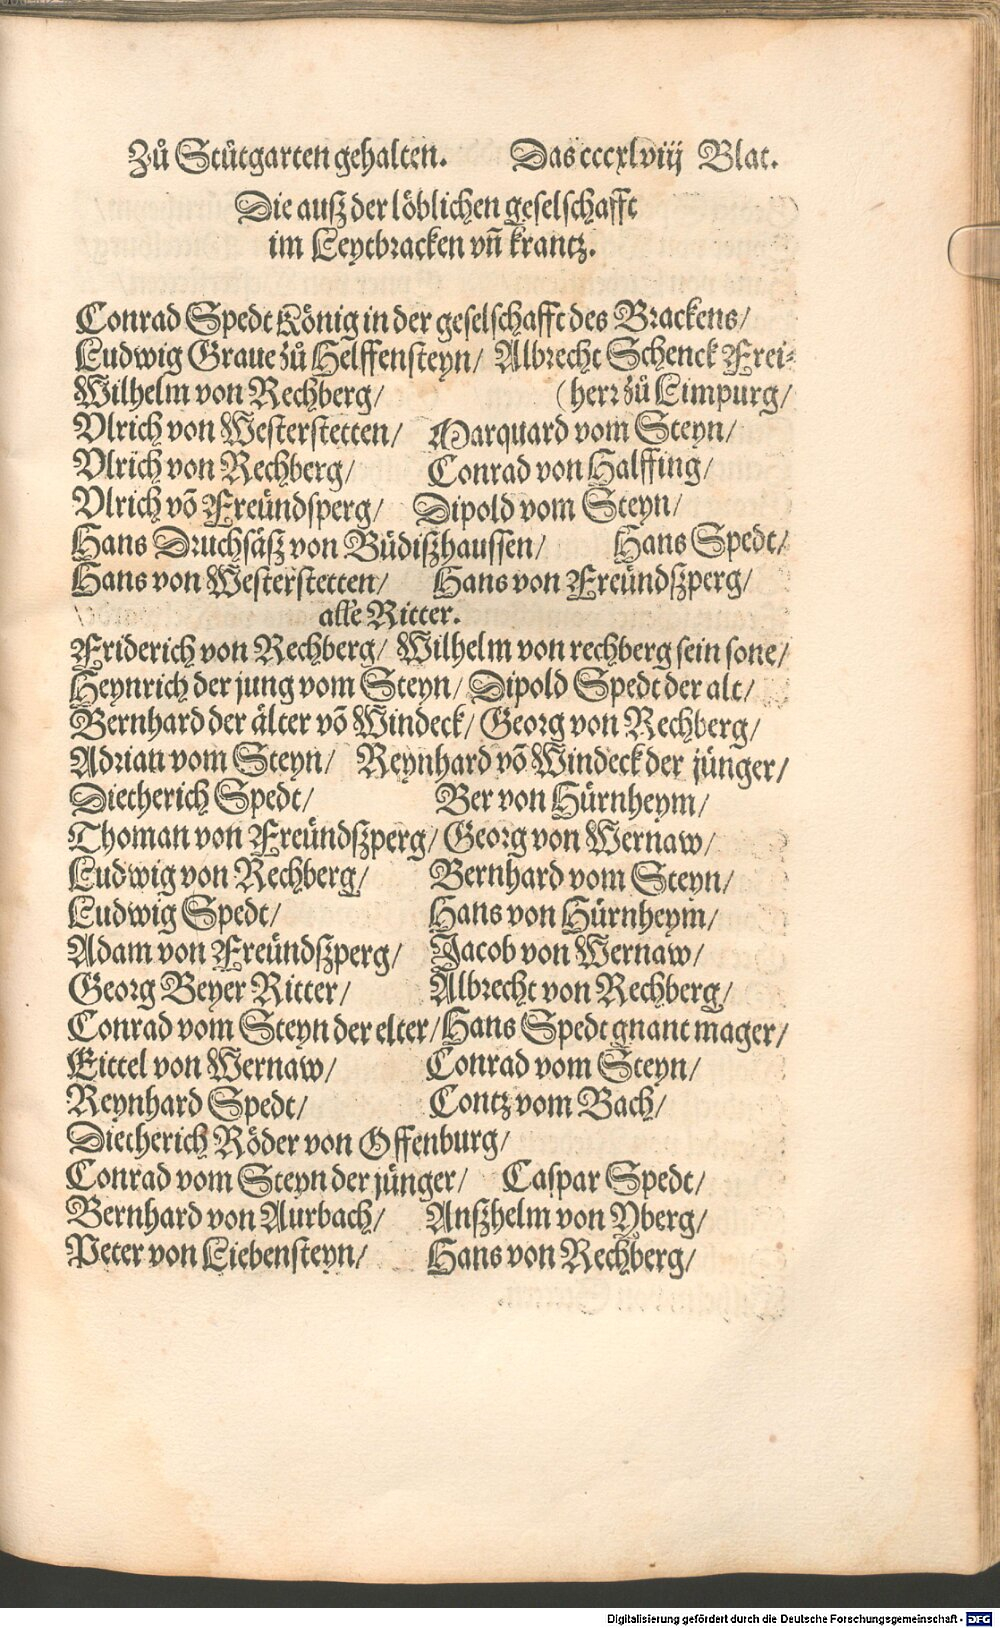 Zů Stůtgarten gehalten. Das cccxlviij Blat.
Die ausz der löblichen geselschafft
im Leytbracken vn̄ krantz.
Conrad Spedt König in der geselschafft des Brackens/
Ludwig Graue zů Helffensteyn/ Albrecht Schenck Frei⸗
Wilhelm von Rechberg/ (herr zů Limpurg/
Vlrich von Westerstetten/ Marquard vom Steyn/
Vlrich von Rechberg/ Conrad von Halffing/
Vlrich vō Freündsperg/ Dipold vom Steyn/
Hans Druchsäsz von Büdiszhaussen/ Hans Spedt/
Hans von Westerstetten/ Hans von Freündszperg/
alle Ritter.
Friderich von Rechberg/ Wilhelm von rechberg sein sone/
Heynrich der jung vom Steyn/ Dipold Spedt der alt/
Bernhard der älter vō Windeck/ Georg von Rechberg/
Adrian vom Steyn/ Reynhard vō Windeck der jünger/
Dietherich Spedt/ Ber von Hürnheym/
Thoman von Freündszperg/ Georg von Wernaw/
Ludwig von Rechberg/ Bernhard vom Steyn/
Ludwig Spedt/ Hans von Hürnheym/
Adam von Freündszperg/ Jacob von Wernaw/
Georg Beyer Ritter/ Albrecht von Rechberg/
Conrad vom Steyn der elter/ Hans Spedt gnant mager/
Eittel von Wernaw/ Conrad vom Steyn/
Reynhard Spedt/ Contz vom Bach/
Dietherich Röder von Offenburg/
Conrad vom Steyn der jünger/ Caspar Spedt/
Bernhard von Aurbach/ Anszhelm von Yberg/
Peter von Liebensteyn/ Hans von Rechberg/
Digitalisierung gefördert durch die Deutsche Forschungsgemeinschaft - DFG